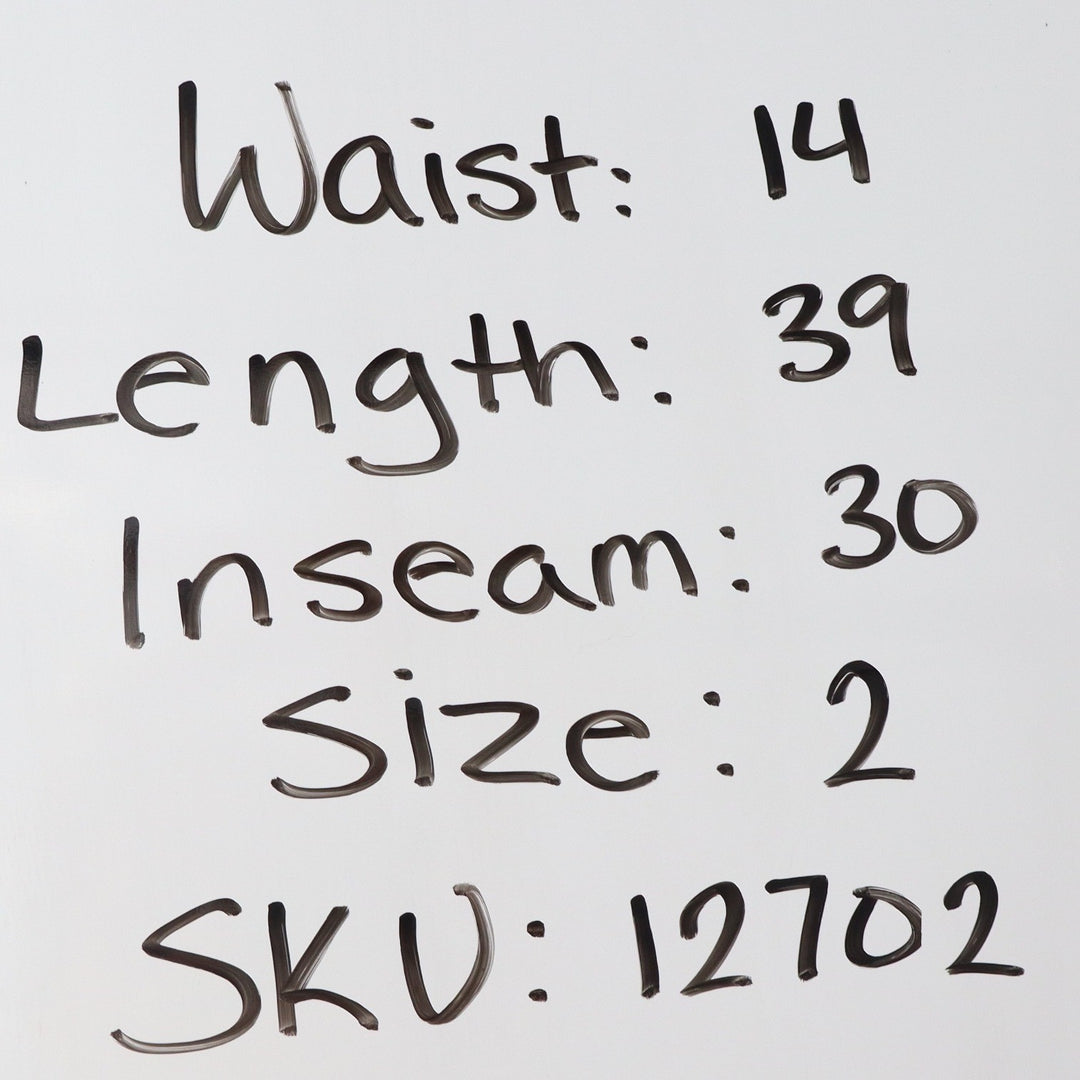 Waist: 14
Length: 39
Inseam: 30
Size: 2
SKU: 12702